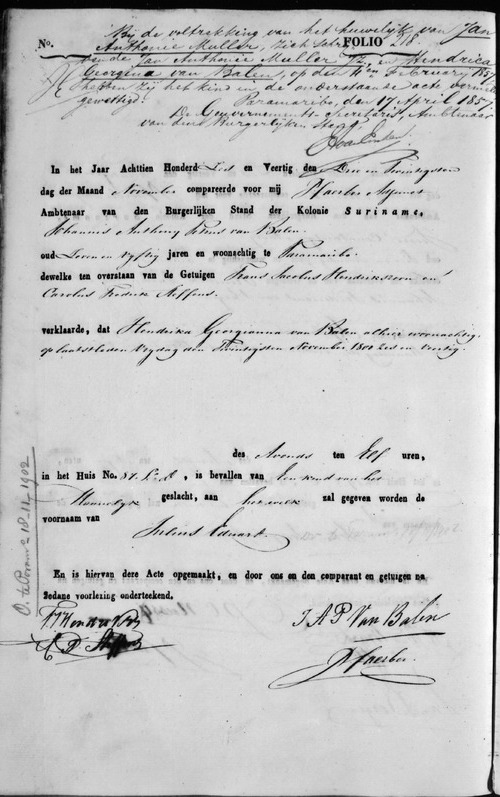 Bij de voltrekking van het huwelijk van Jan
No. Anthonie Muller, zich FOLIO 218.
Jan Anthonie Muller Jz, en Hendrica
Georgina van Balen, op den February 185
hebben zij het kind in de onderstaande acte vermeld
gewettigd.
Paramaribo, den 17 April 185
De Gouvernements Secretaris, Ambtenaar
van den Burgerlijken Stand,
In het Jaar Achttien Honderd Zes en Veertig den Drie en Twintigsten
dag der Maand November compareerde voor mij
Ambtenaar van den Burgerlijken Stand der Kolonie Suriname,
Johannis Anthony Prins van Balen
oud Zeven en vyftig jaren en woonachtig te Paramaribo
dewelke ten overstaan van de Getuigen Frans Jacobus Hendrikszoon en
Carolus Fredrik
verklaarde, dat Hendrika Georgianna van Balen alhier woonachtig,
op laatstleden Vrydag den Twintigsten November 1800 zes en veertig
des Avonds ten Elf uren,
in het Huis No. 87. L. D, is bevallen van Een kind van het
Mannelyk geslacht, aan hetwelk zal gegeven worden de
voornaam van
Julius Eduard.
En is hiervan deze Acte opgemaakt, en door ons en den comparant en getuigen na
gedane voorlezing onderteekend.
J A P Van Balen
18-11-1902